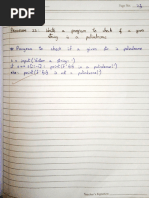 Page No. 24
Practical 22: Write a program to check if a given
string is a palindrome.
# Program to check if a given str is a palindrome
s = input("Enter a string: ")
if s == s[::-1]: print(f"{s} is a palindrome")
else: print(f"{s} is not a palindrome")
Teacher's Signature